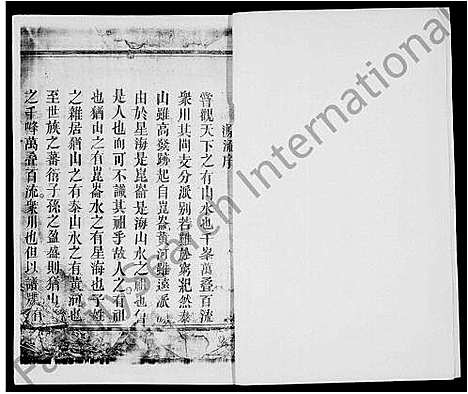 序
嘗觀天下之有山水也千峯萬疊百流
衆川其間支分派别若難窮紀然泰
山雖高發跡起自崑崙黃河雖遠派
由於星海是崑崙是海山水之祖也
是人也而可不識其祖乎故人之有祖
也猶山之有崑崙水之有星海也
之雜居猶山之有泰山水之有黃河也
至世族之蕃衍子孫之盈盛則猶山
之千峰萬疊百流衆川也但以譜